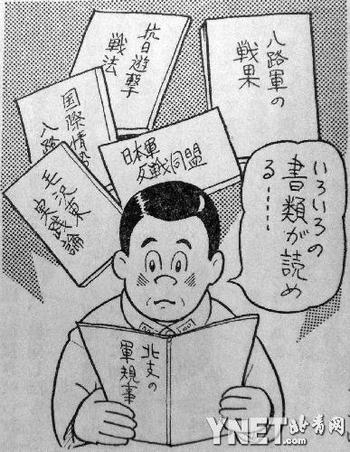 八路軍の
戦果
抗日遊撃
戦法
国際情勢
八路
日本軍
反戦同盟
毛沢東
実践論
いろいろの
書類が読め
る……
北支の
軍規事
YNET 北青网
.com